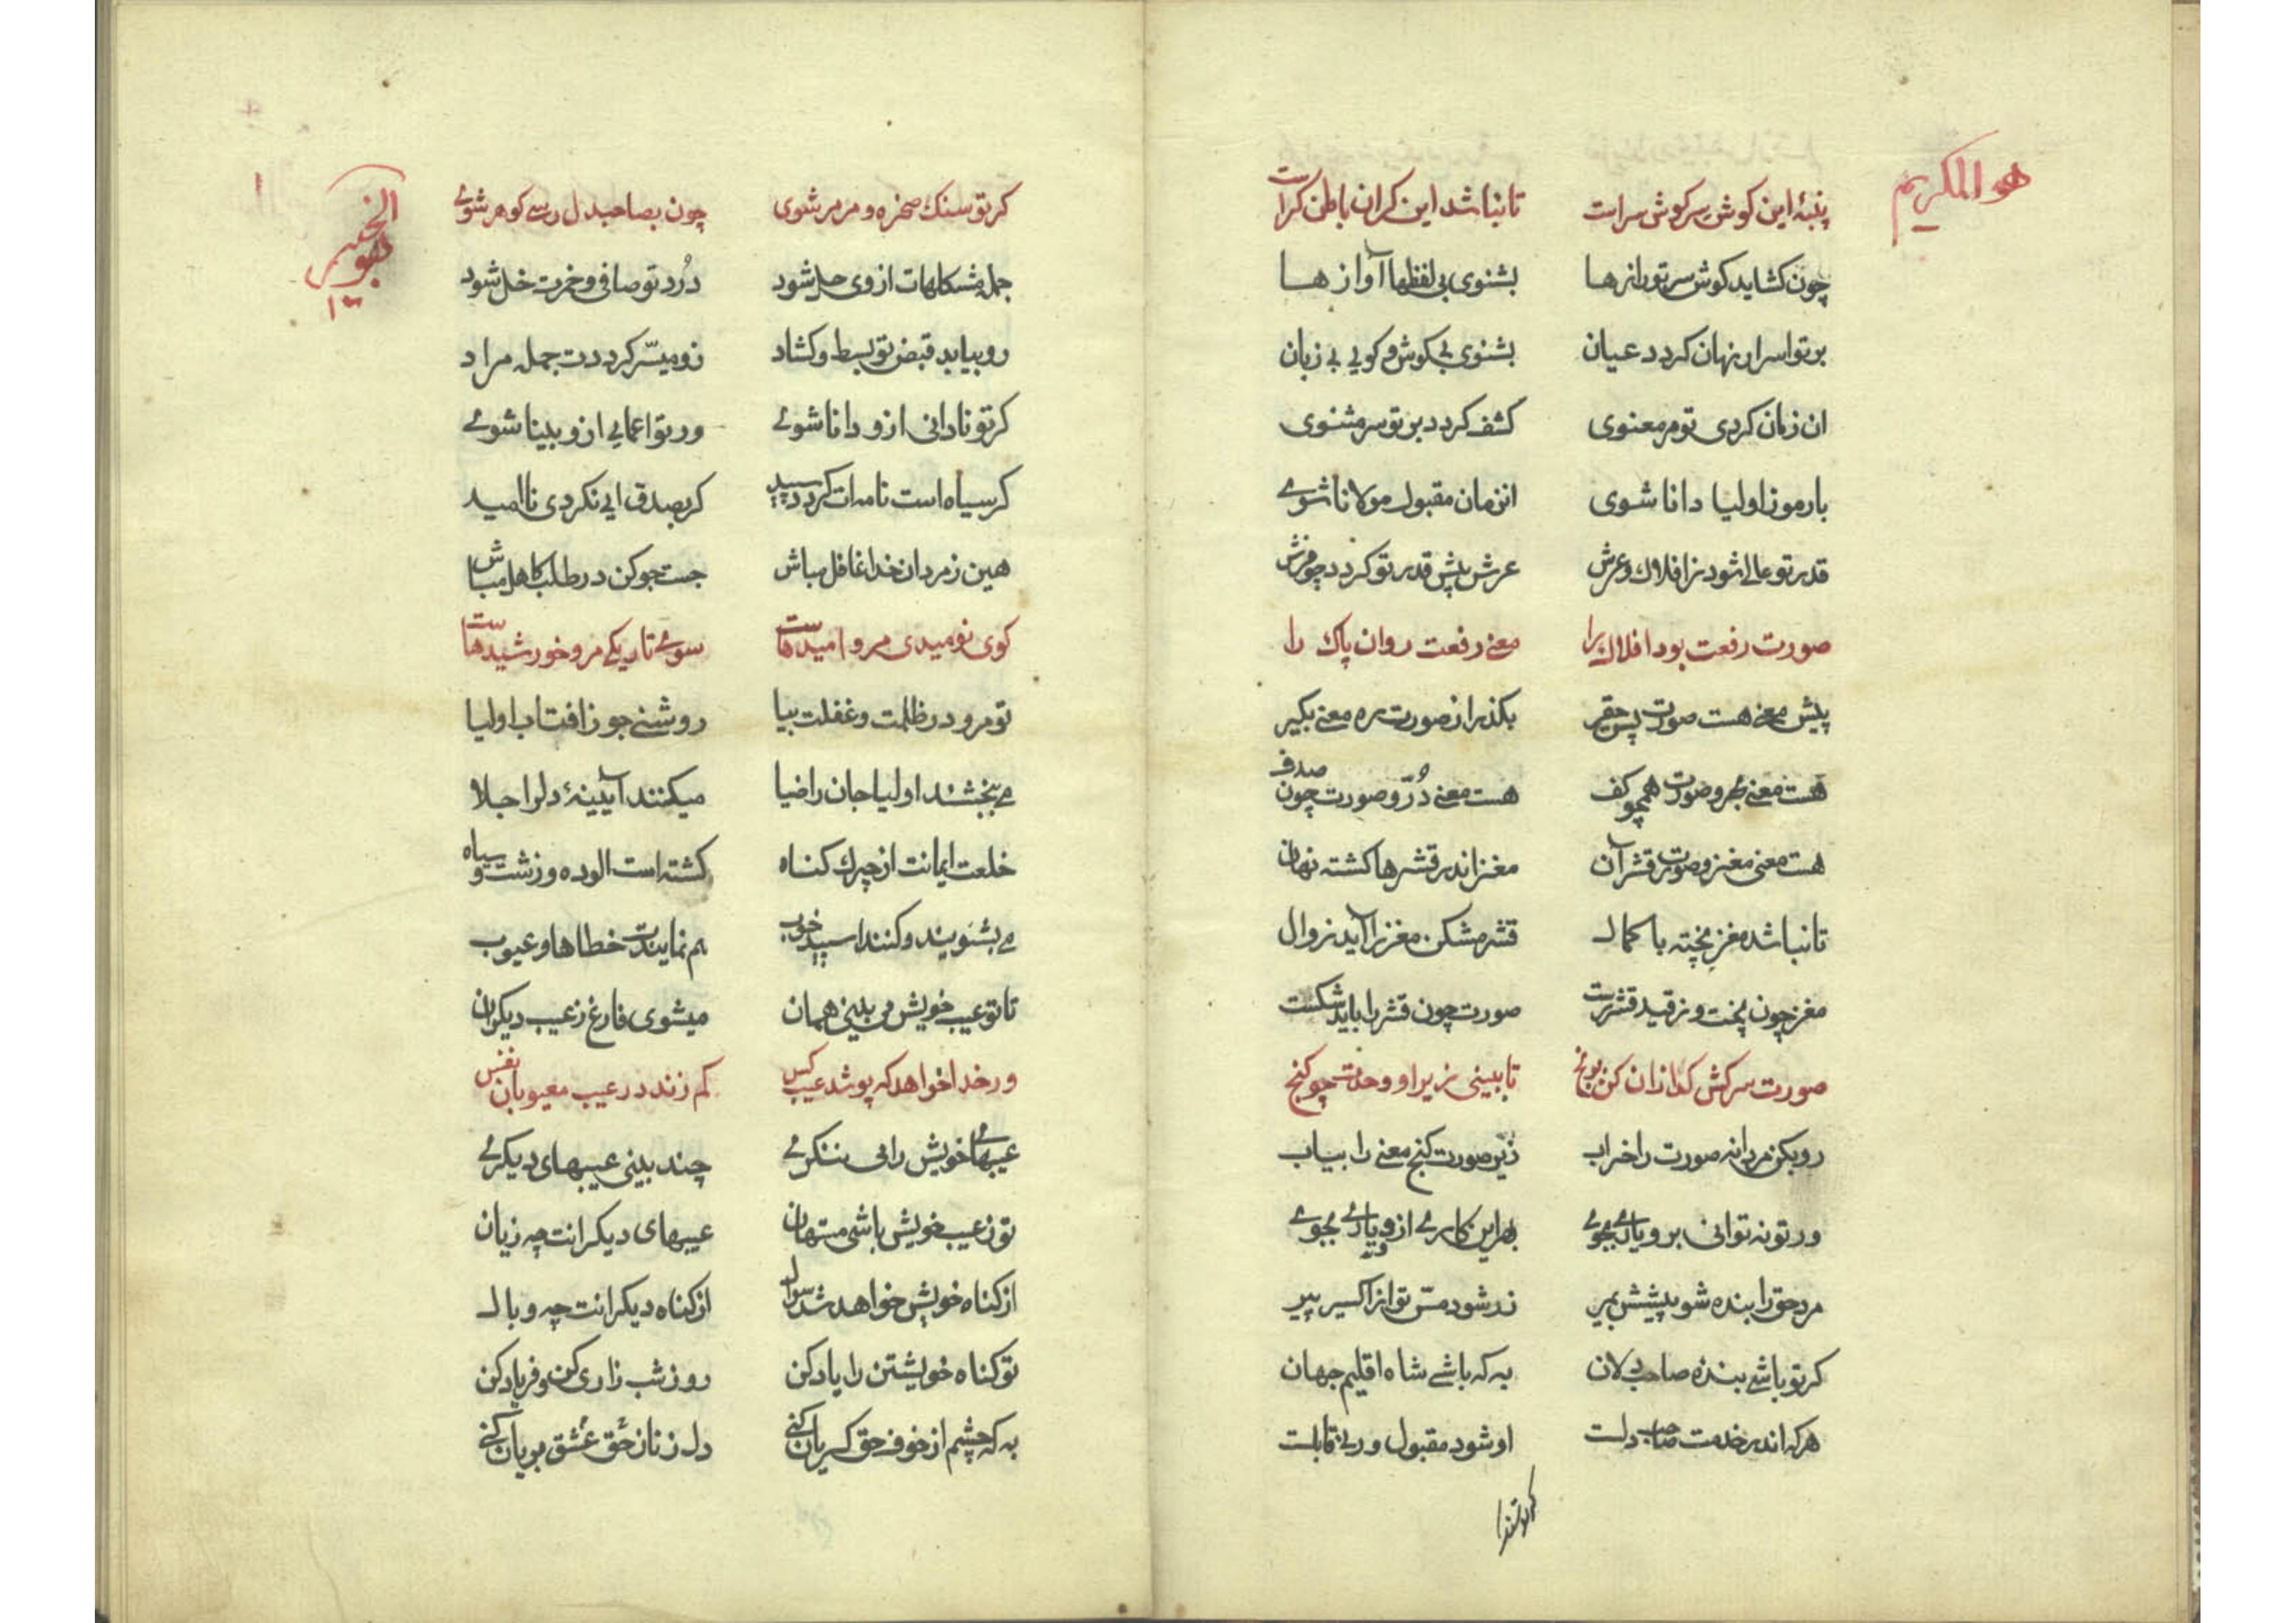 هو المکریم
پنبهٔ این کوش سر کوش سراست تا نباشد این کران باطن کراست
چون کشاید کوش سر تو رازها بشنوی بی لفظها آوازها
بر تو اسرار نهان کردد عیان بشنوی بی کوش و کویی بی زبان
ان زمان کردی تو مر معنوی کشف کردد بر تو سر مثنوی
با رموز اولیا دانا شوی انزمان مقبول مولانا شوی
قدر تو عالی شود ز افلاک و عرش عرش پیش قدر تو کردد چو فرش
صورت رفعت بود افلاک را معنی رفعت روان پاک را
پیش معنی هست صورت پس حقیر بکذر از صورت ره معنی بکیر
هست معنی بحر و صورت همچو کف هست معنی دُرّ و صورت چون صدف
هست معنی مغز و صورت قشر آن مغز اندر قشرها کشته نهان
تا نباشد مغز پخته با کمال قشر مشکن مغز را آید زوال
مغز چون پخت و ز قید قشر رست صورت چون قشر را باید شکست
صورت سرکش کدازان کن برنج تا ببینی زیر او وحدت چو کنج
رو بکن مردانه صورت را خراب زیر صورت کنج معنی را بیاب
ور تو نه توانی برو یاری بجوی بهر این کاری از و یاری بجوی
مرد حق را بنده شو پیشش بمیر زر شود مسّ تو از اکسیر پیر
کر تو باشی بنده صاحبدلان به که باشی شاه اقلیم جهان
هر که اندر خدمت صاحب دلست او شود مقبول ور بی قابلست
کر تو سنک
الخبیر
هو
۱۳
۱
کر تو سنک صخره و مرمر شوی چون بصاحبدل رسی کوهر شوی
جمله مشکلهات از وی حل شود دُرد تو صافی و خمرت خل شود
رو بیابد قبض تو بسط و کشاد زو میسّر کرددت جمله مراد
کر تو نادانی ازو دانا شوی ور تو اعمایی ازو بینا شوی
کر سیاه است نامه ات کردد سپید کر بصدق ایی نکردی ناامید
هین ز مردان خدا غافل مباش جست جو کن در طلب کاهل مباش
کوی نومیدی مرو امیدهاست سوی تاریکی مرو خورشیدهاست
تو مرو در ظلمت و غفلت بیا روشنی جو ز افتاب اولیا
می بخشند اولیا جان را ضیا میکنند آیینهٔ دلرا جلا
خلعت ایمانت از چرک کناه کشته است الوده و زشت و سیاه
می بشویند و کنند اسپید خوب هم نمایندت خطاها و عیوب
تا تو عیب خویش می بینی همان میشوی فارغ ز عیب دیکران
ور خدا خواهد که پوشد عیب کس کم زند در عیب معیوبان نفس
عیبهای خویش را می ننکری چند بینی عیبهای دیکری
تو ز عیب خویش باشی متهان عیبهای دیکرانت چه زیان
از کناه خویش خواهد شد سوال از کناه دیکرانت چه وبال
تو کناه خویشتن را یاد کن روز شب زاری کن و فریاد کن
به که چشم از خوف حق کریان کنی دل ز نار حق عشق بریان کنی